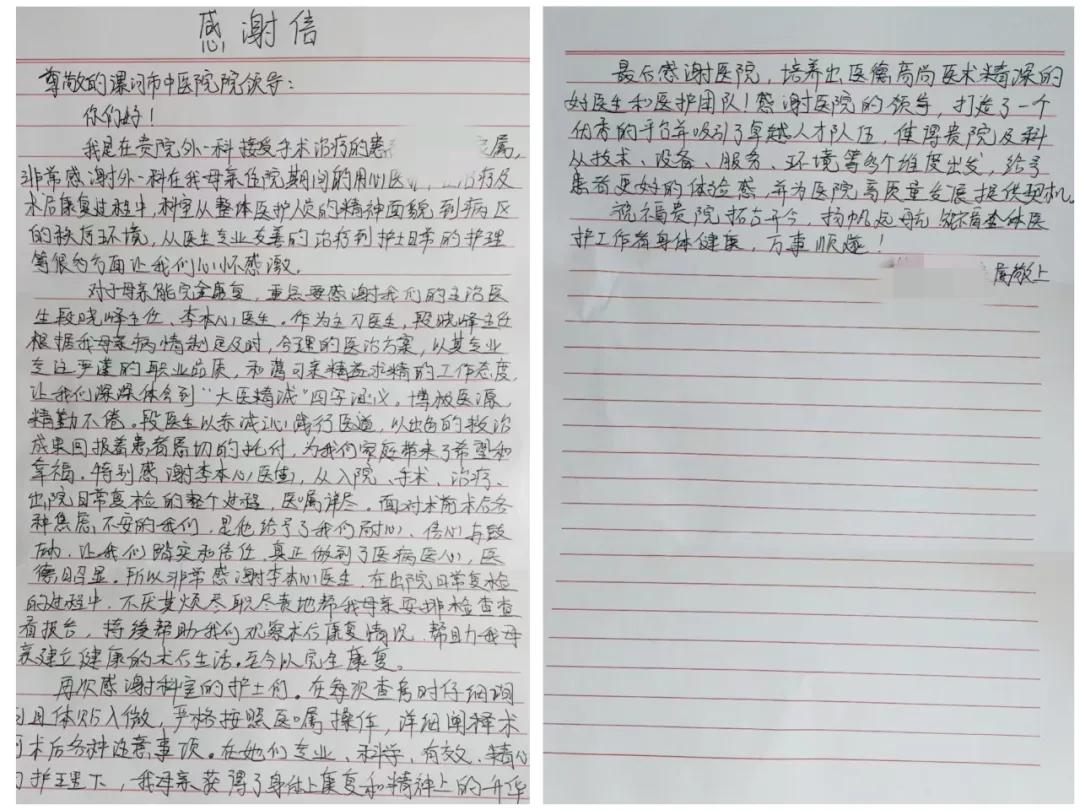 感谢信
尊敬的漯河市中医院院领导:
你们好!
我是在贵院外一科接受手术治疗的患 属,
非常感谢外一科在我母亲住院期间的用心医 治疗及
术后康复过程中,科室从整体医护人员的精神面貌到病区
的秩序环境,从医生专业友善的治疗到护士日常的护理
等很多方面让我们心怀感激。
对于母亲能完全康复,重点要感谢我们的主治医
生段晓峰主任、李本心医生。作为主刀医生,段晓峰主任
根据我母亲病情制定及时,合理的医治方案,以其专业
专注严谨的职业品质,和蔼可亲精益求精的工作态度,
让我们深深体会到“大医精诚”四字涵义,博极医源,
精勤不倦。段医生以赤诚之心践行医道,以出色的救治
成果回报着患者恳切的托付,为我们家庭带来了希望和
幸福。特别感谢李本心医生,从入院、手术、治疗、
出院日常复检的整个过程,医嘱详尽。面对术前术后各
种焦虑不安的我们,是他给予了我们耐心、信心与鼓
励,让我们踏实和信任,真正做到了医病医心,医
德昭显。所以非常感谢李本心医生,在出院日常复检
的过程中,不厌其烦尽职尽责地帮我母亲安排检查查
看报告,持续帮助我们观察术后康复情况,帮助我母
亲建立健康的术后生活。至今以完全康复。
再次感谢科室的护士们。在每次查房时仔细询
问且体贴入微,严格按照医嘱操作,详细阐释术
术后各种注意事项。在她们专业、科学、有效、精心
护理下,我母亲获得了身体上康复和精神上的升华
最后感谢医院,培养出医德高尚医术精深的
好医生和医护团队!感谢医院的领导,打造了一个
优秀的平台并吸引了卓越人才队伍,使得贵院及科
从技术、设备、服务、环境等多个维度出发,给予
患者更好的体验感,并为医院高质量发展提供契机。
祝福贵院拓古开今,扬帆起航 祝福全体医
护工作者身体健康,万事顺遂!
属敬上